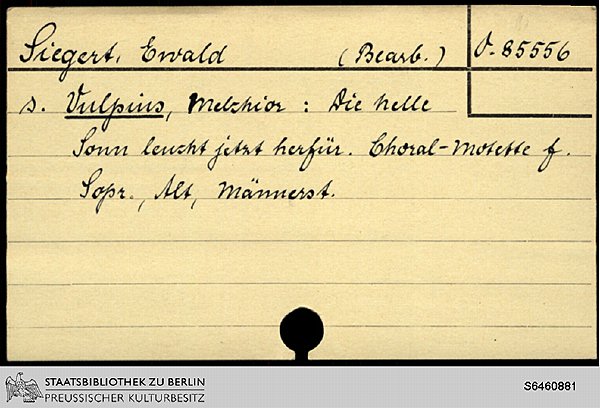 Siegert, Ewald (Bearb.) O. 85556
s. Vulpius, Melchior : Die helle
Sonn leucht jetzt herfür. Choral-Motette f.
Sopr., Alt, Männerst.
STAATSBIBLIOTHEK ZU BERLIN
PREUSSISCHER KULTURBESITZ
S6460881